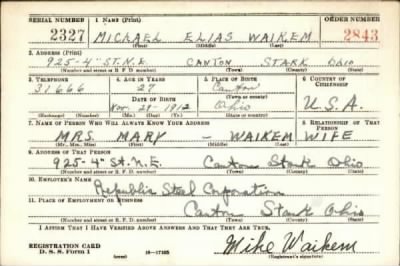 SERIAL NUMBER 1. NAME (Print) ORDER NUMBER
2327 MICHAEL ELIAS WAIKEM 2843
(First) (Middle) (Last)
2. ADDRESS (Print)
925-4" ST. N.E. CANTON STARK OHIO
(Number and street or R. F. D. number) (Town) (County) (State)
3. TELEPHONE 4. AGE IN YEARS 5. PLACE OF BIRTH 6. COUNTRY OF CITIZENSHIP
31666 27 Canton
DATE OF BIRTH (Town or county)
Nov. 29-1912 Ohio U.S.A.
(Exchange) (Number) (Mo.) (Day) (Yr.) (State or country)
7. NAME OF PERSON WHO WILL ALWAYS KNOW YOUR ADDRESS 8. RELATIONSHIP OF THAT PERSON
MRS. MARY - WAIKEM WIFE
(Mr., Mrs., Miss) (First) (Middle) (Last)
9. ADDRESS OF THAT PERSON
925-4" St. N.E. Canton Stark Ohio
(Number and street or R. F. D. number) (Town) (County) (State)
10. EMPLOYER'S NAME
Republic Steel Corporation
11. PLACE OF EMPLOYMENT OR BUSINESS
Canton Stark Ohio
(Number and street or R. F. D. number) (Town) (County) (State)
I AFFIRM THAT I HAVE VERIFIED ABOVE ANSWERS AND THAT THEY ARE TRUE.
REGISTRATION CARD
D. S. S. Form 1 (over) 16-17105
Mike Waikem
(Registrant's signature)